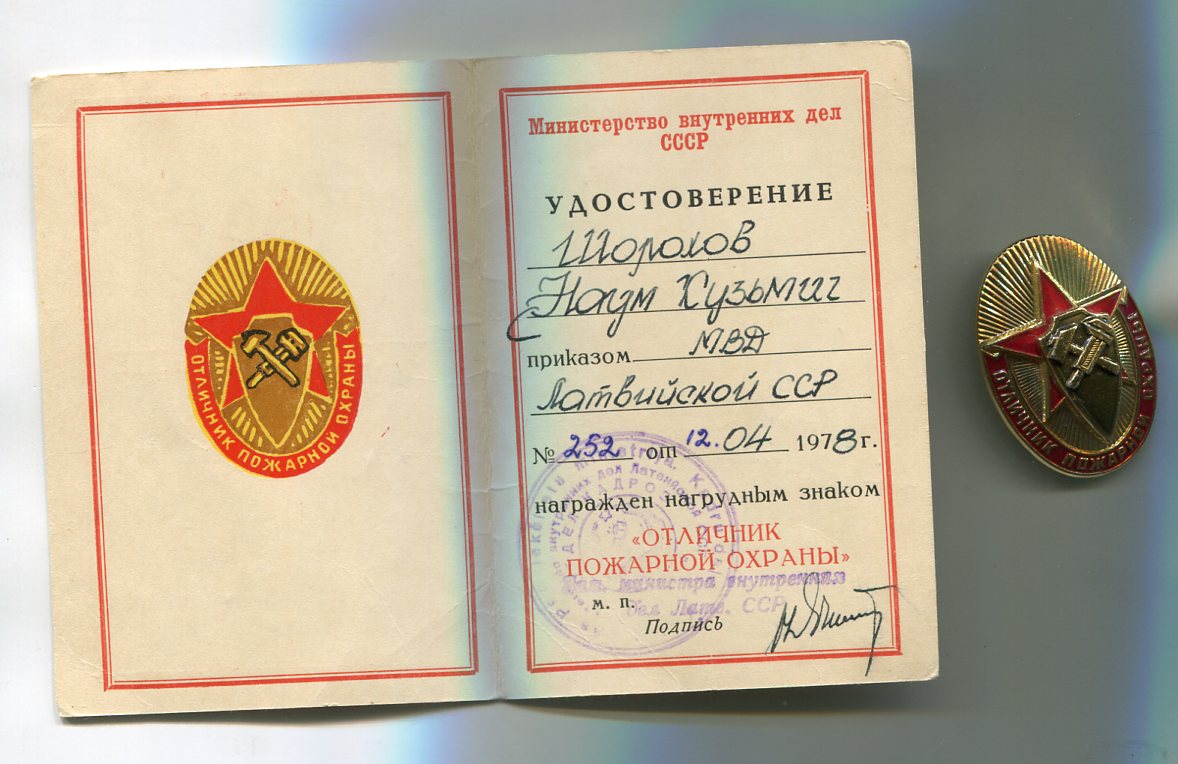 ОТЛИЧНИК ПОЖАРНОЙ ОХРАНЫ
Министерство внутренних дел
СССР
УДОСТОВЕРЕНИЕ
Шорохов
Наум Кузьмич
приказом МВД
Латвийской ССР
№ 252 от 12.04 1978 г.
награжден нагрудным знаком
«ОТЛИЧНИК
ПОЖАРНОЙ ОХРАНЫ»
Зам. министра внутренних
дел Латв. ССР
м. п.
Подпись
ОТЛИЧНИК ПОЖАРНОЙ ОХРАНЫ